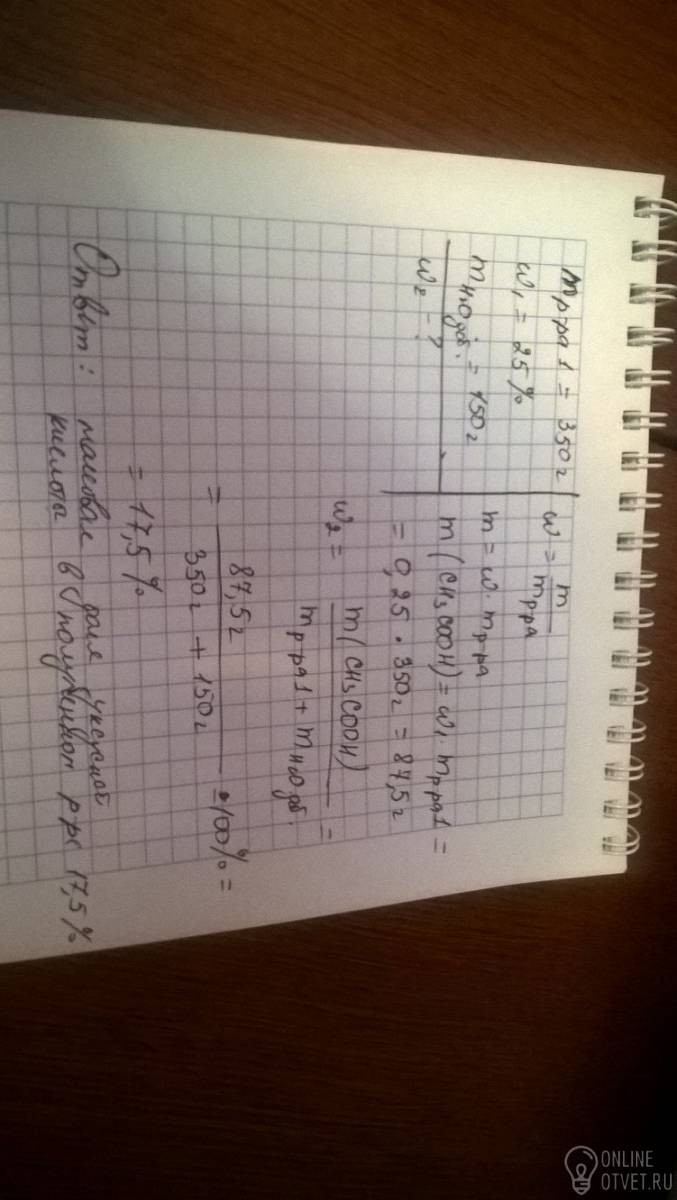 m р-ра 1 = 350 г
w₁ = 25 %
m H₂O доб. = 150 г
w₂ - ?
w = m / m р-ра
m = w · m р-ра
m (CH₃COOH) = w₁ · m р-ра 1 =
= 0,25 · 350 г = 87,5 г
w₂ = m (CH₃COOH) / m р-ра 1 + m H₂O доб. =
= 87,5 г / 350 г + 150 г · 100 % =
= 17,5 %
Ответ: массовая доля уксусной
кислоты в полученном р-ре 17,5 %
ONLINE
OTVET.RU